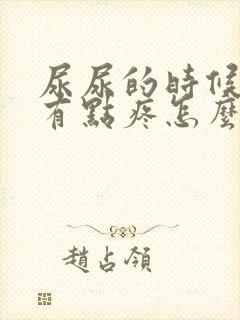 尿尿的時候
有點疼怎麼
趙占領